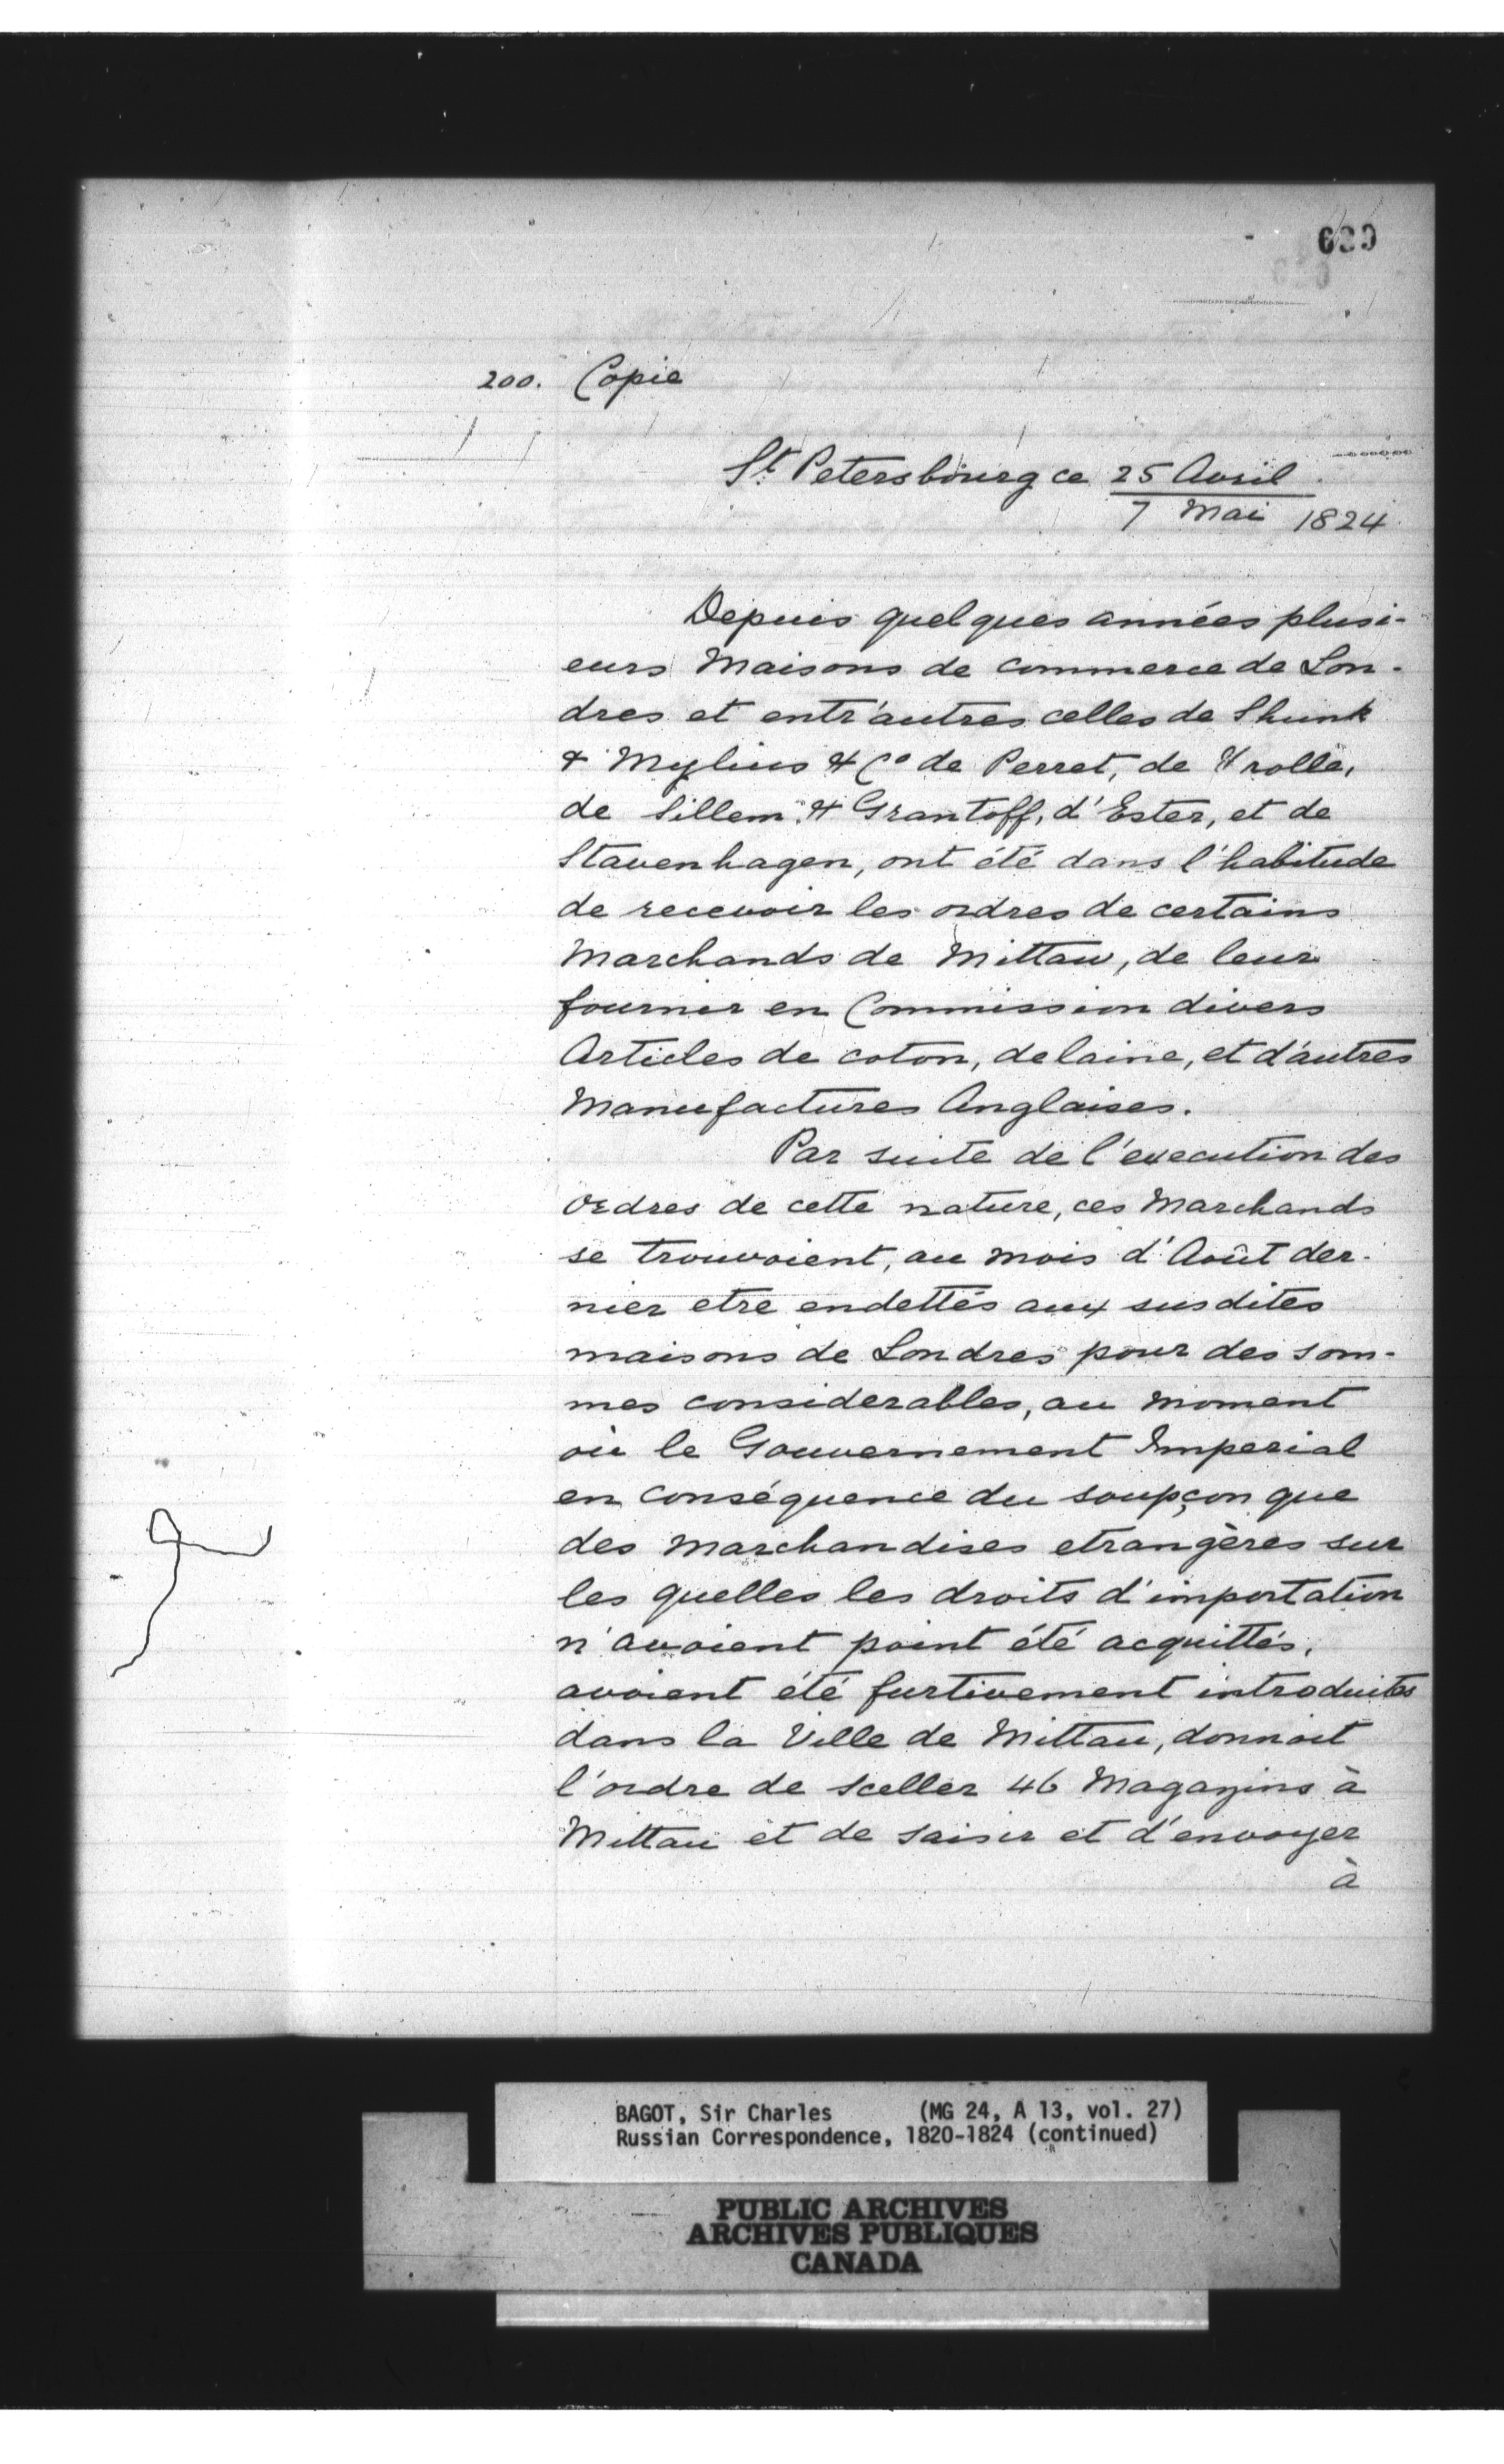 200. Copie
St Petersbourg ce 25 Avril
7 Mai 1824
Depuis quelques années plusi-
eurs Maisons de commerce de Lon-
dres et entr'autres celles de Shunk
& Mylius & Co de Perret, de
de Sillem & Grantoff, d'Ester, et de
Stavenhagen, ont été dans l'habitude
de recevoir les ordres de certains
Marchands de Mittau, de leur
fournir en Commission divers
Articles de coton, de laine, et d'autres
Manufactures Anglaises.
Par suite de l'execution des
ordres de cette nature, ces Marchands
se trouvoient, au mois d'Août der-
nier etre endettés aux susdites
maisons de Londres pour des som-
mes considerables, au moment
où le Gouvernement Imperial
en conséquence du soupçon que
des Marchandises etrangères sur
les quelles les droits d'importation
n'avoient point été acquittés,
avoient été furtivement introduites
dans la Ville de Mittau, donnoit
l'ordre de sceller 46 Magazins à
Mittau et de saisir et d'envoyer
à
BAGOT, Sir Charles (MG 24, A 13, vol. 27)
Russian Correspondence, 1820-1824 (continued)
PUBLIC ARCHIVES
ARCHIVES PUBLIQUES
CANADA